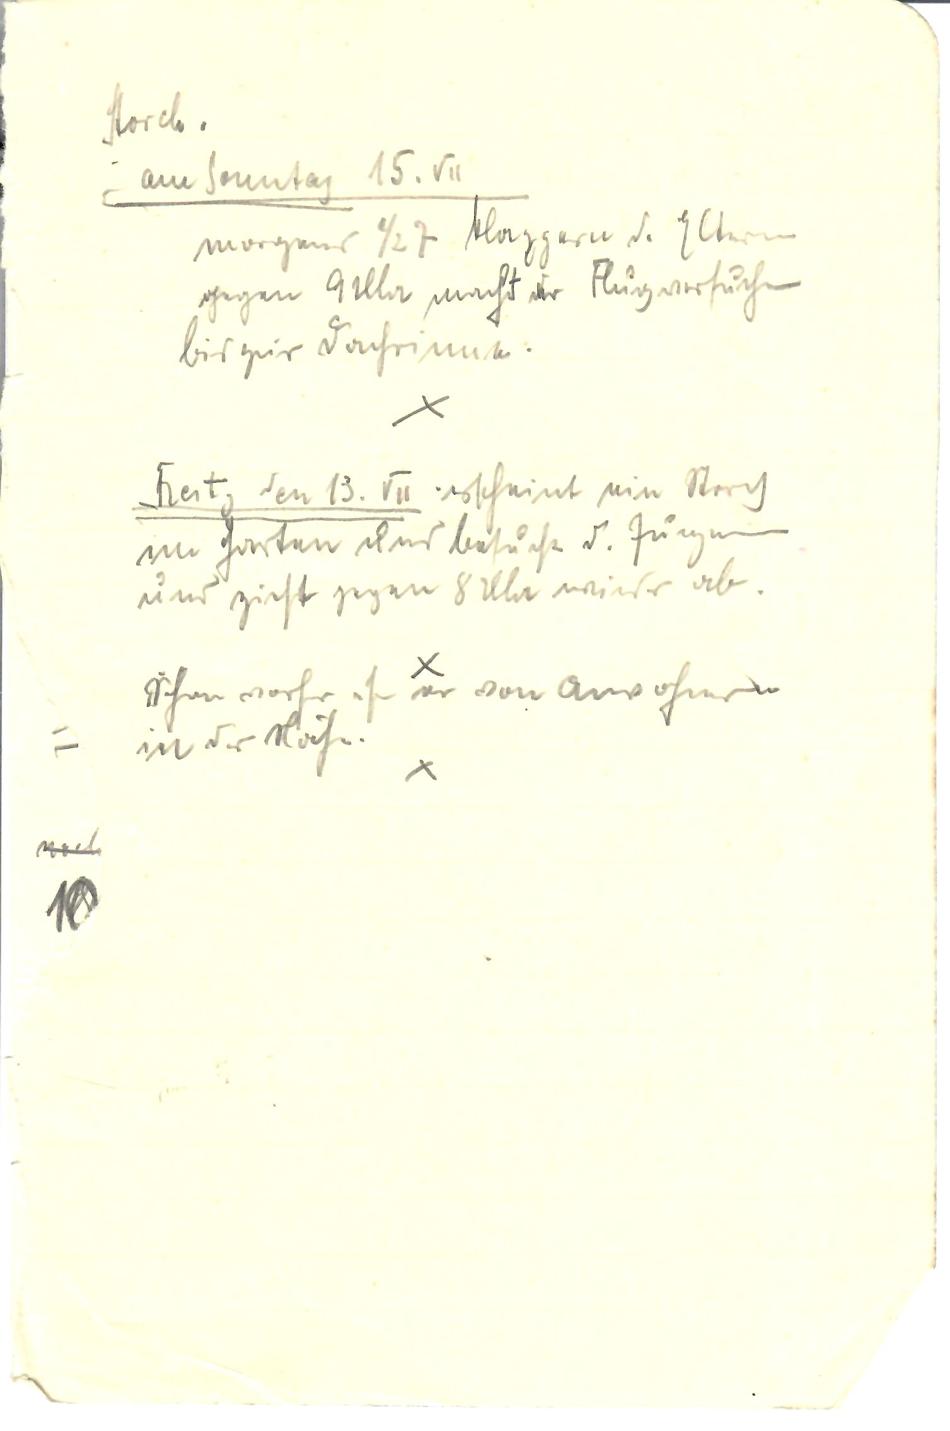 Storch.
am Sonntag 15. VII
morgens 1/2 7 Klappern d. Eltern
gegen 9 Uhr macht er Flugversuche
bis zur Dachrinne.
x
Freitg den 13. VII erscheint ein Storch
im Garten und besucht d. Jungen
und zieht gegen 8 Uhr wieder ab.
x
Schon vorher er von Anwohnern
in der Nähe.
x
noch
10